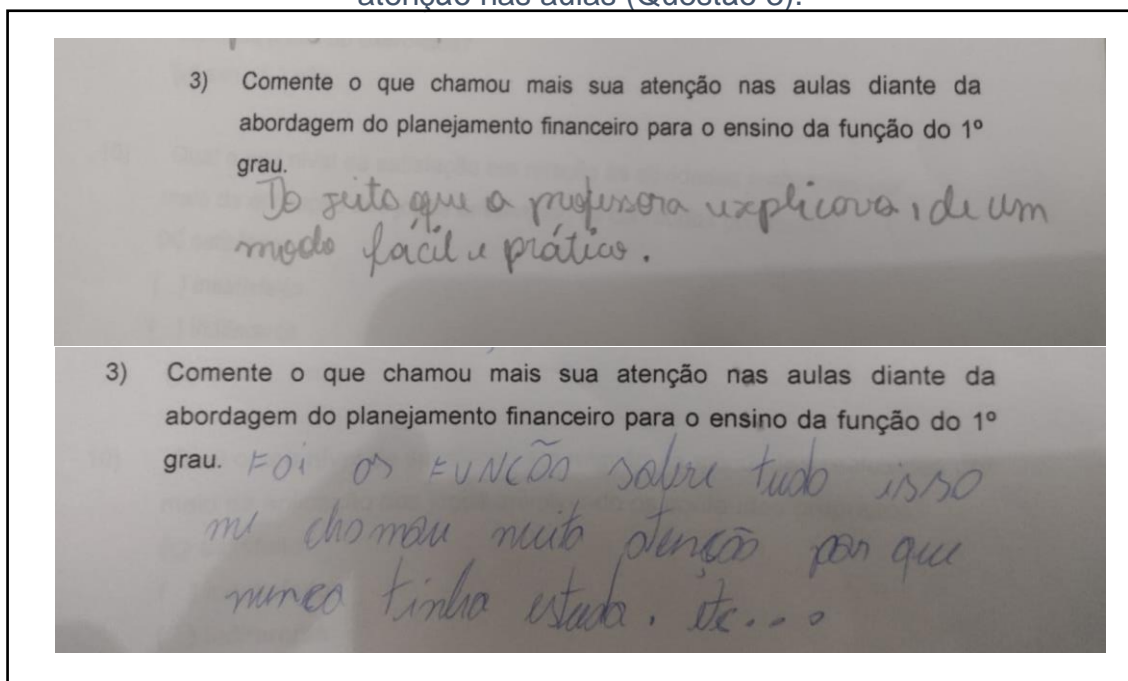 atenção nas aulas (Questão 3).
3) Comente o que chamou mais sua atenção nas aulas diante da
abordagem do planejamento financeiro para o ensino da função do 1º
grau.
Do jeito que a professora explicava, de um
modo fácil e prático.
3) Comente o que chamou mais sua atenção nas aulas diante da
abordagem do planejamento financeiro para o ensino da função do 1º
grau. FOi as FUNCÕS sobre tudo isso
me chamou muito atenção por que
nunca tinha estuda. etc...